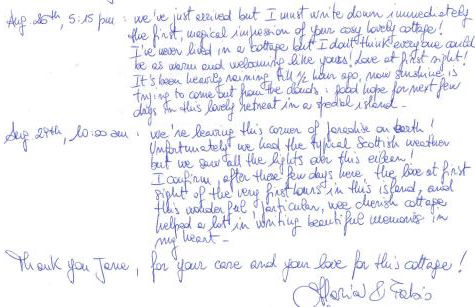 Aug 25th, 5:15 pm : we've just arrived but I must write down immediately
the first, magical impression of your cosy lovely cottage!
I've never lived in a cottage but I don't think everyone could
be as warm and welcoming like yours! Love at first sight!
It's been heavily raining till ½ hour ago, now sunshine is
trying to come out from the clouds : good hope for next few
days in this lovely retreat in a special island.
Aug 29th, 10:00 am : we're leaving this corner of paradise on earth!
Unfortunately we had the typical Scottish weather
but we saw all the lights over this eileen!
I confirm, after these few days here, the love at first
sight of the very first hours in this island, and
this wonderful, particular, wee cherish cottage
helped a lot in writing beautiful memories in
my heart -
Thank you Jane, for your care and your love for this cottage!
& Fabio